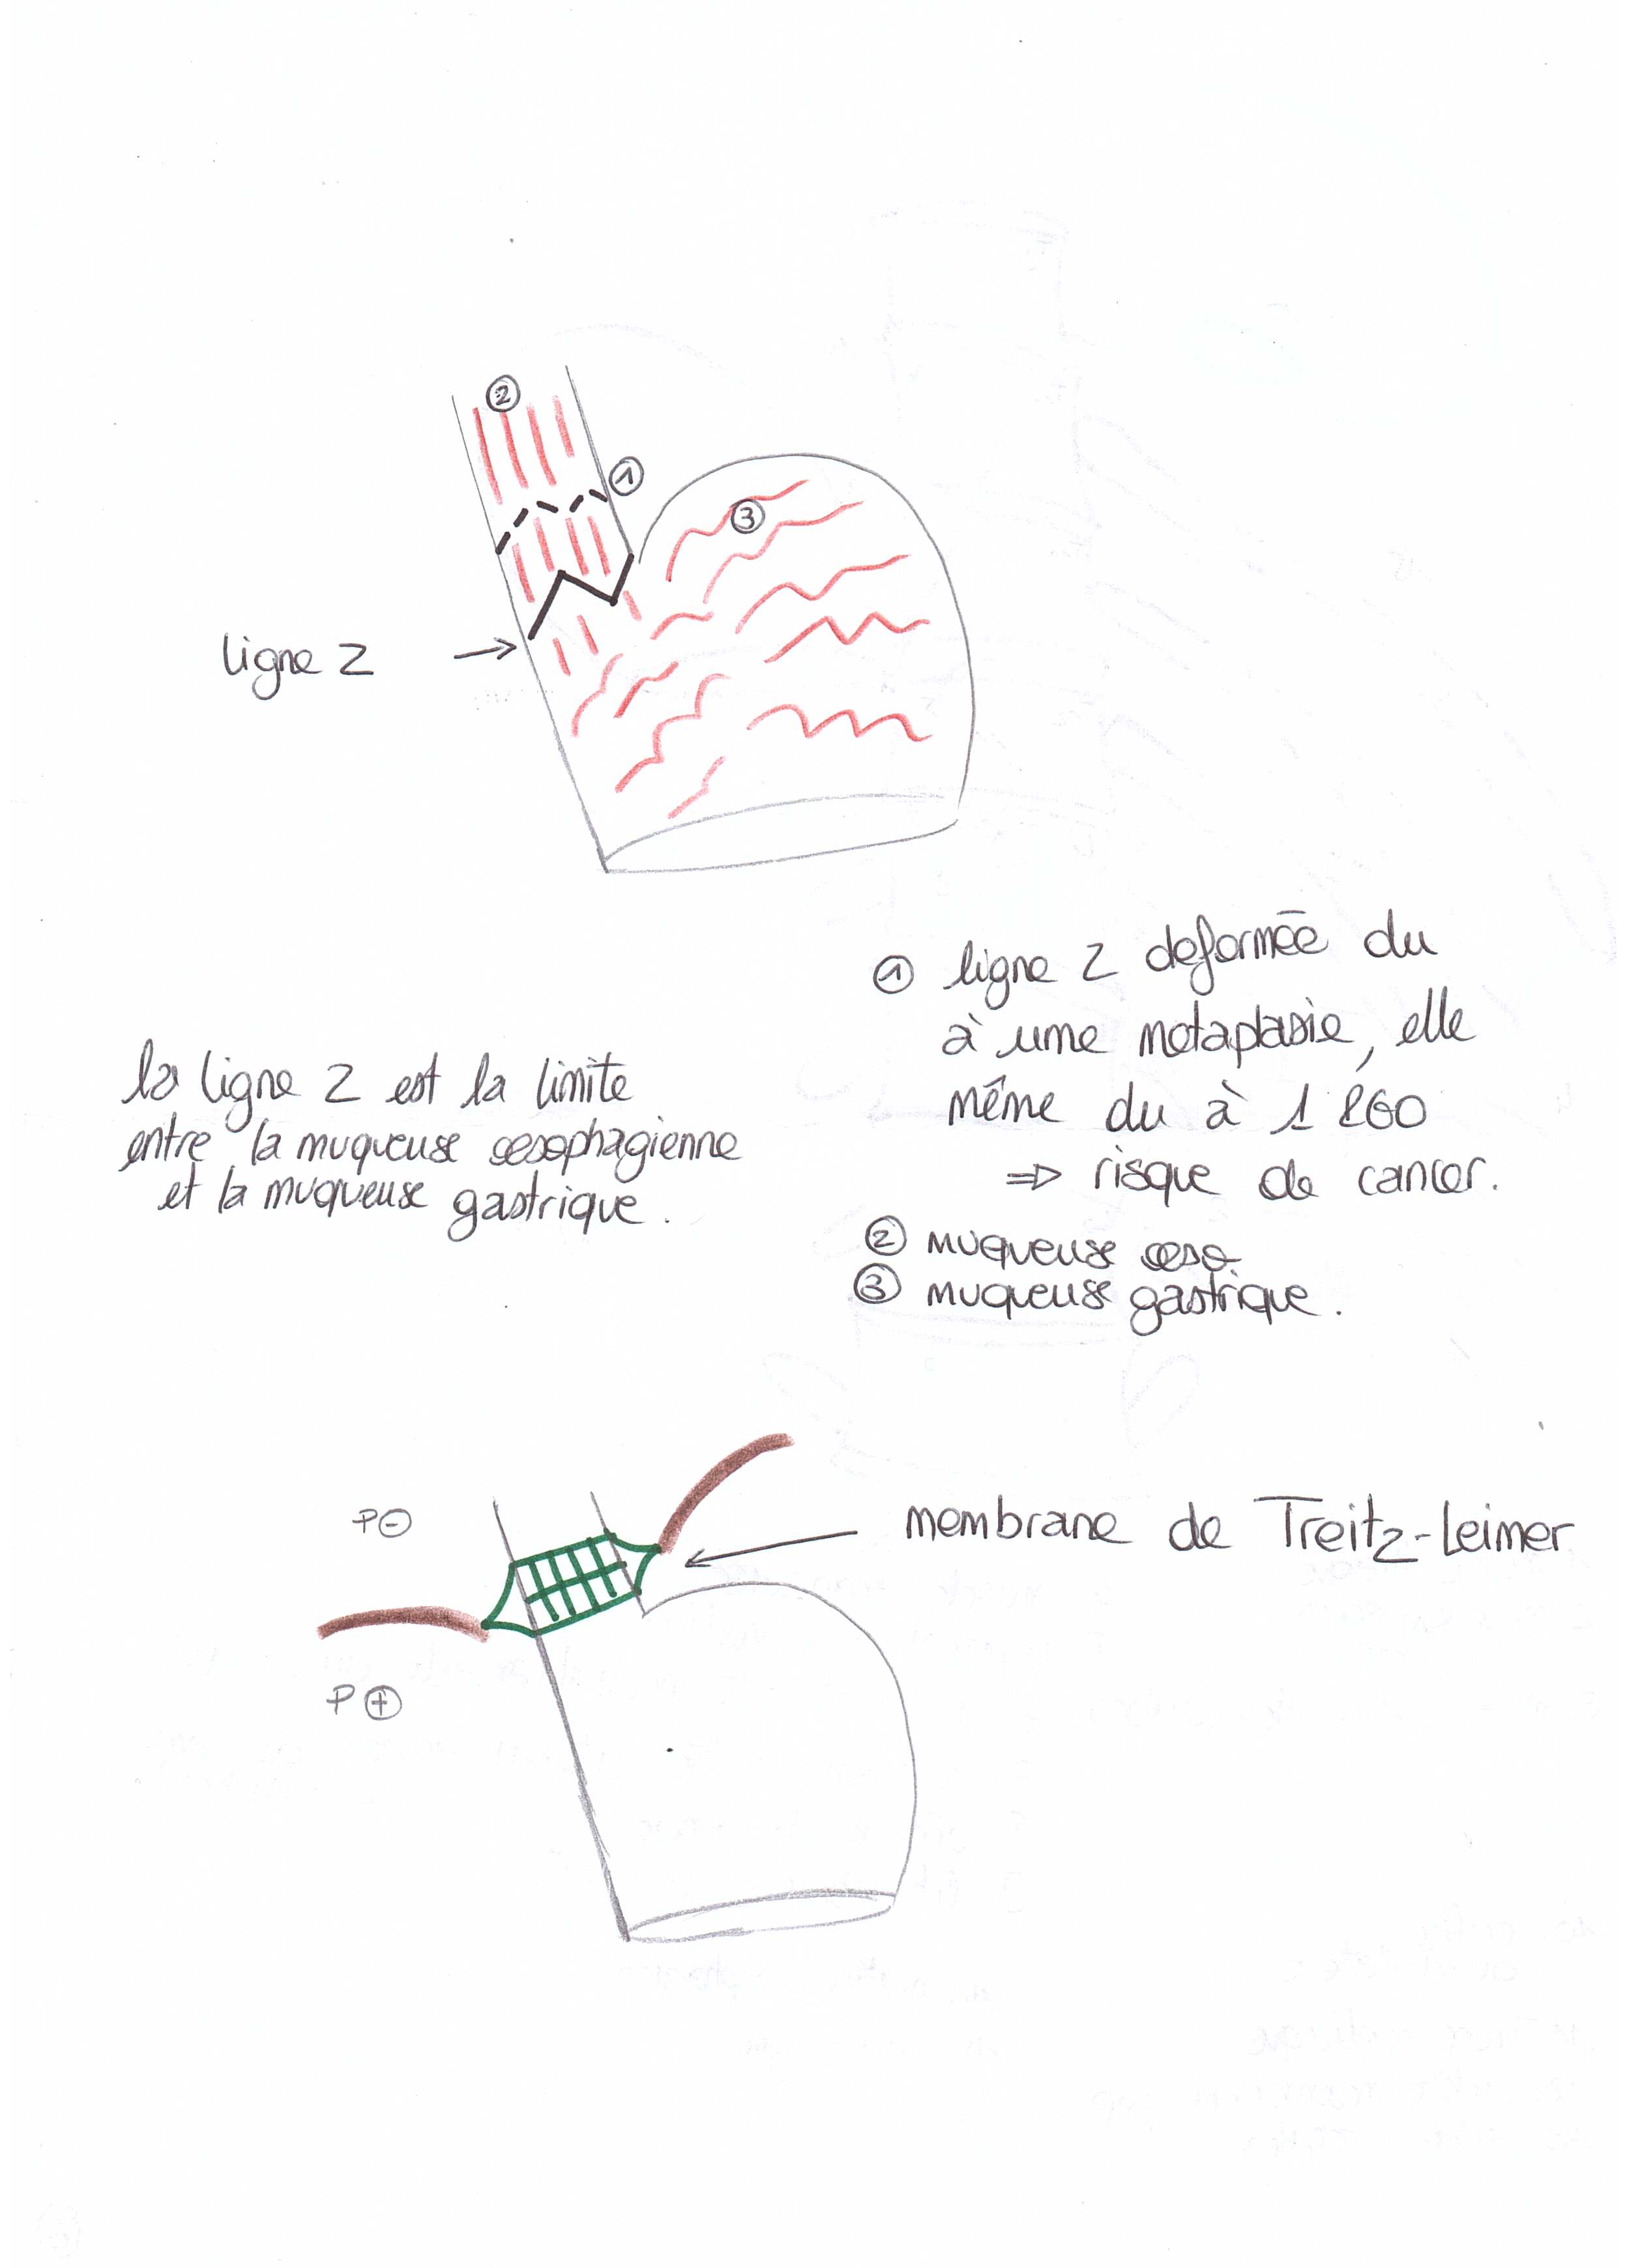 ②
①
③
ligne Z
① ligne Z deformée du
à une metaplasie, elle
même du à 1 RGO
⇒ risque de cancer.
② muqueuse œso
③ muqueuse gastrique.
la ligne Z est la limite
entre la muqueuse œsophagienne
et la muqueuse gastrique.
P⊖
membrane de Treitz-Leimer
P⊕